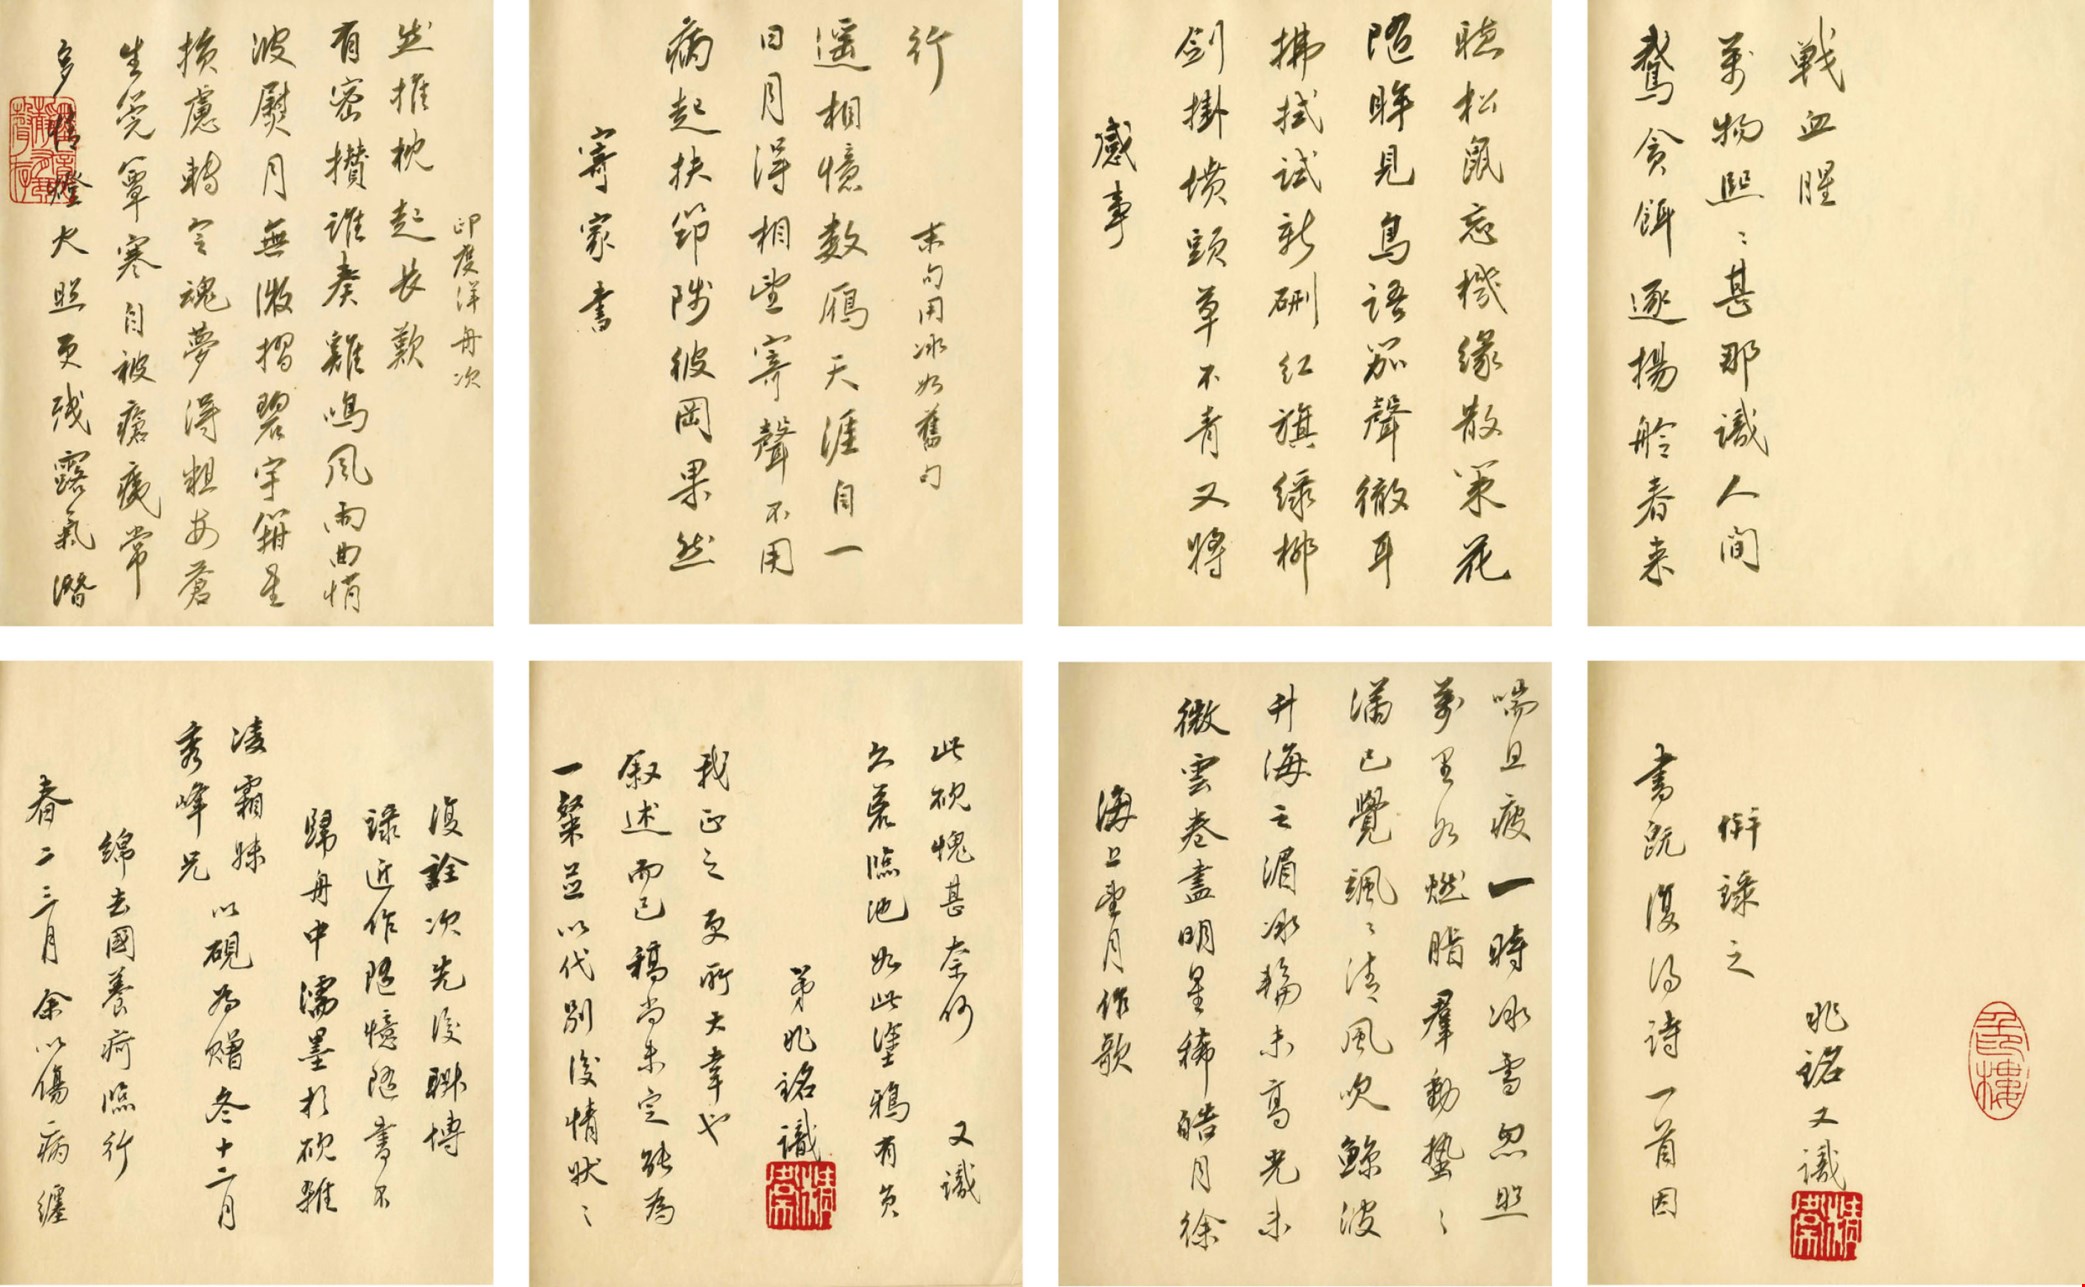 多情燈火照更殘露氣潛
生筦簟寒自被瘡痍常
損慮轉令魂夢得粗安蒼
波熨月無微摺碧宇箝星
有密攢誰奏雞鳴風雨曲悄
然推枕起長歎
印度洋舟次
寄家書
病起扶筇陟彼岡果然
日月得相望寄聲不用
遥相憶數鴈天涯自一
行
末句用冰如舊句
感事
劍掛墳頭草不青又將
拂拭試新硎紅旗緑柳
隨眸見鳥語笳聲徹耳
聴松鼠忘機緣散策花
鵞貪餌逐揚舲春来
萬物熙〻甚那識人間
戰血腥
春二三月余以傷病纏
綿去國養疴臨行
秀峰兄
凌霜妹以硯為贈冬十二月
歸舟中濡墨於硯雜
錄近作隨憶隨書不
復詮次先後聊博
一粲並以代別後情狀〻
叙述而已稿尚未定能為
我正之更所大幸也
弟兆銘識
久荒臨池如此塗鴉有負
此硯愧甚奈何 又識
海上望月作歌
微雲卷盡明星稀皓月徐
升海之湄冰輪未高光未
滿已覺颯〻清風吹鯨波
萬里如燃脂羣動蟄〻
喘且疲一時冰雪忽照
書既復得詩一首因
併錄之
兆銘又識